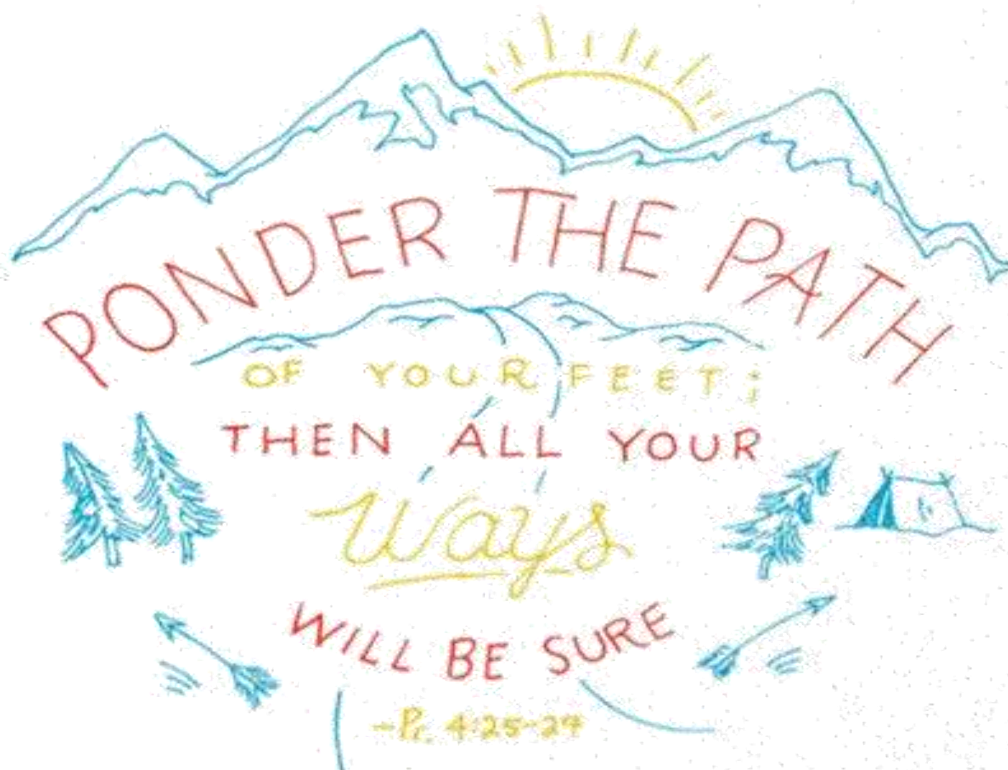 PONDER THE PATH
OF YOUR FEET;
THEN ALL YOUR
Ways
WILL BE SURE
-Pr. 4:25-27